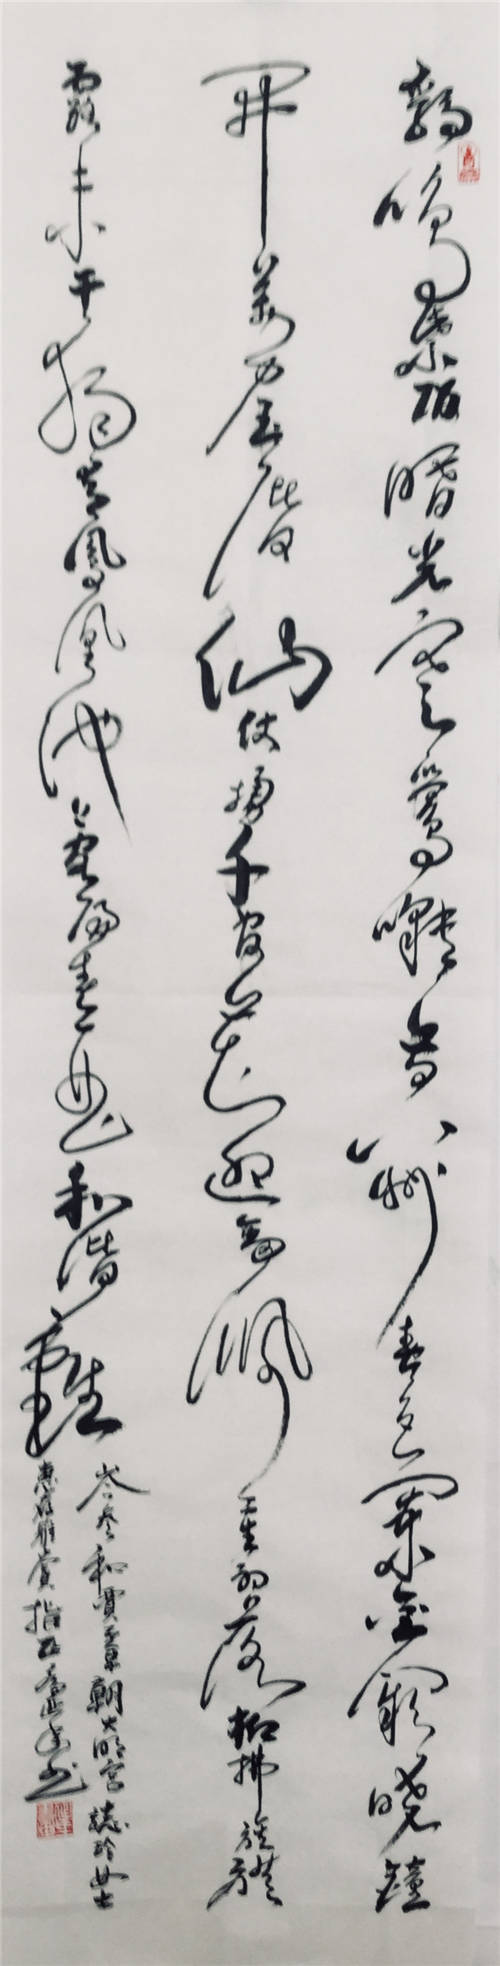 鷄鳴紫陌曙光寒鶯囀皇州春色闌金闕曉鐘
開萬户玉階仙仗擁千官花迎劍佩星初落柳拂旌旗
露未干獨有鳳凰池上客陽春一曲和皆難
岑参和賈至章朝大明宫誌玲女士
惠存雅賞指正